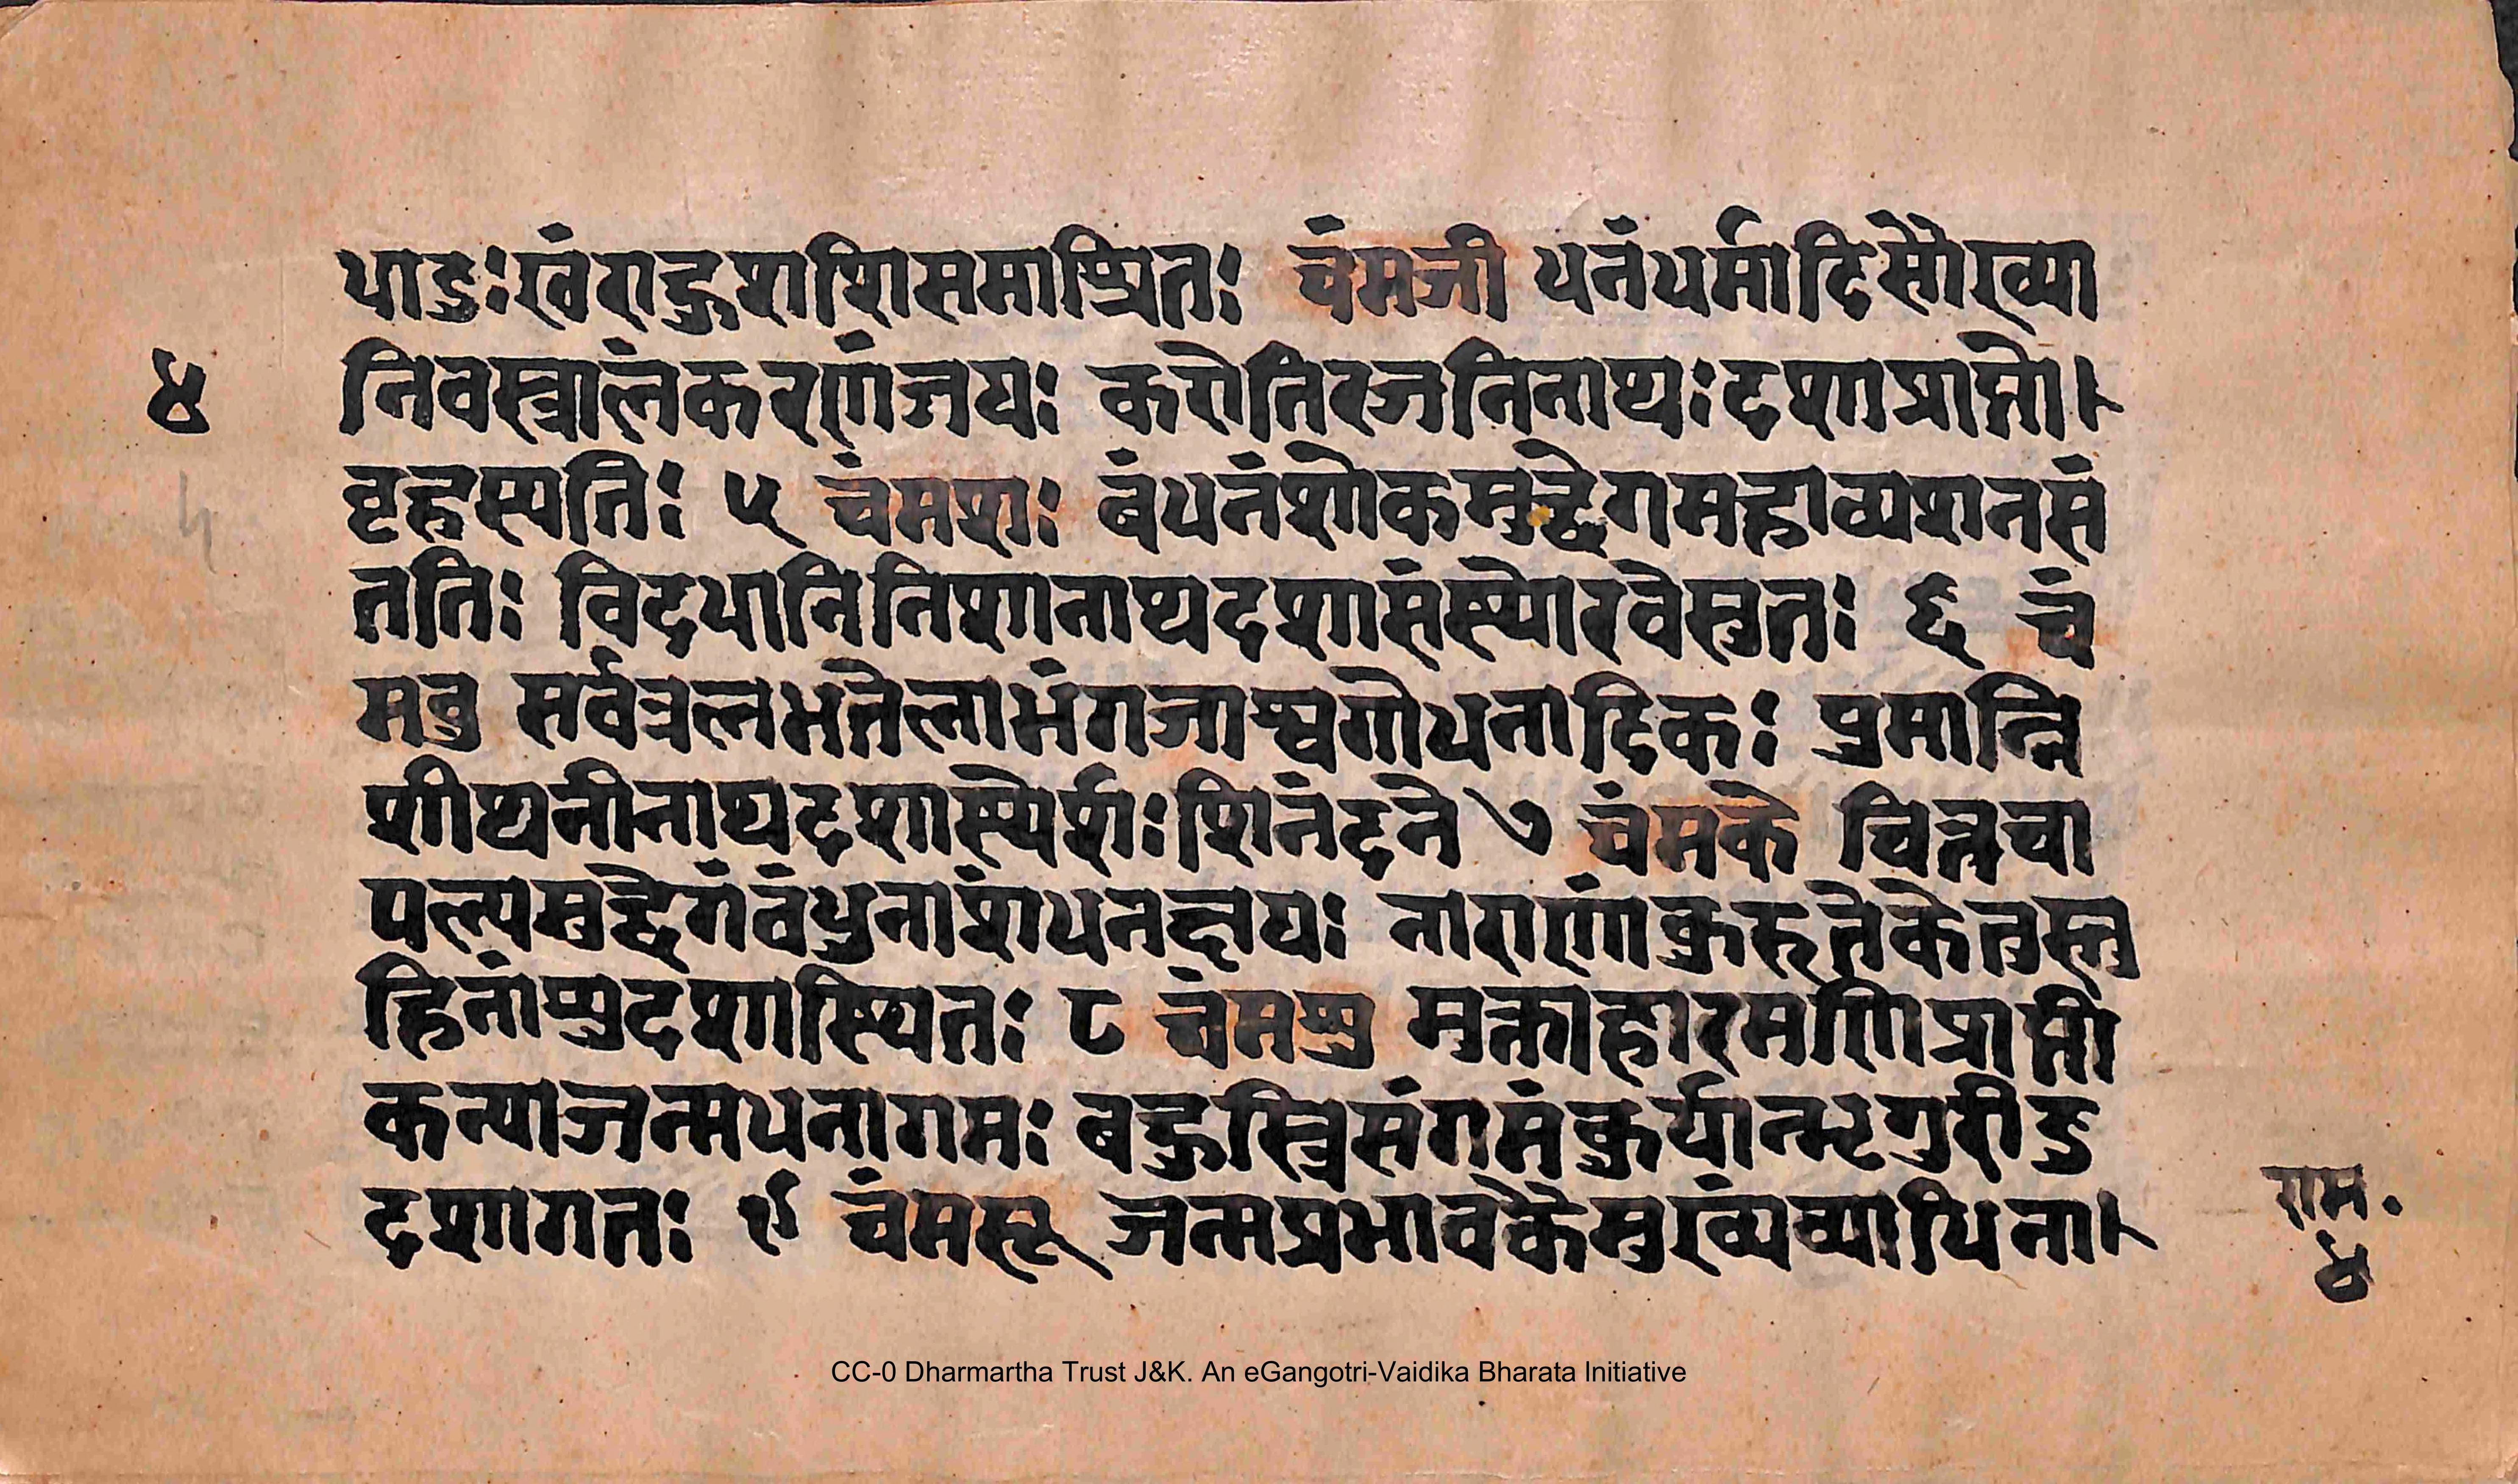 धाडुःखंराहुशशिसमाश्रितः चंमजी धनंधर्मादिसौख्या
४
निवस्त्रालंकरणंजयः करोतिरजनिनाथःदशाप्राप्तो।
वृहस्पतिः ५ चंमशः बंधनंशोकमुद्वेगमहाव्यशनसं
ततिः विदधानिनिशानाथदशासंस्योरवेस्तुतः ६ चं
मबु सर्वत्रलभतेलाभंगजाश्वगोधनादिकः पुमान्नि
शीथनीनाथदशास्येशःशिनंदने ७ चंमके चित्तचा
पल्यमुद्वेगंबंधुनाशंधनक्षयः नाराणांकुरुतेकेतुस्तु
हिनांशुदशास्थितः ८ चंमशु मुक्ताहारमणिप्राप्ती
कन्याजन्मधनागमः बहुस्त्रिसंगमंकुर्यान्भृगुरीडु
दशागतः ९ चंमसू जन्मप्रभावकेमुख्यंव्याधिना।
राम.
४
CC-0 Dharmartha Trust J&K. An eGangotri-Vaidika Bharata Initiative